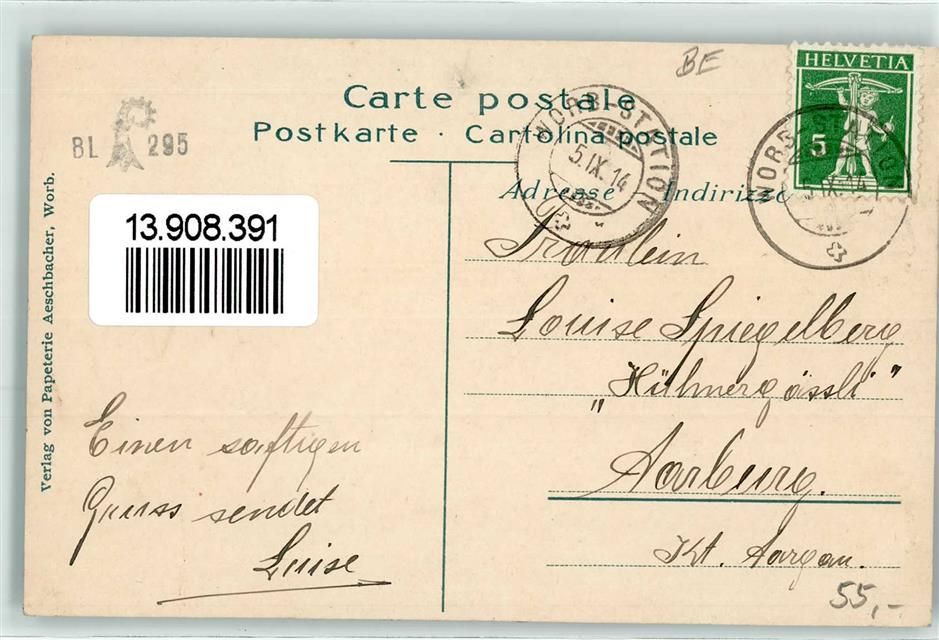 BE
HELVETIA
5
Carte postale
Postkarte · Cartolina postale
BL 295
WORB-STATION
5.IX.14
WORB-STATION
IX.14
Adresse Indirizzo
13.908.391
Verlag von Papeterie Aeschbacher, Worb.
Fräulein
Louise Spiegelberg
„Hühnergässli"
Aarburg.
Kt. Aargau.
Einen saftigen
Gruss sendet
Luise
55,-